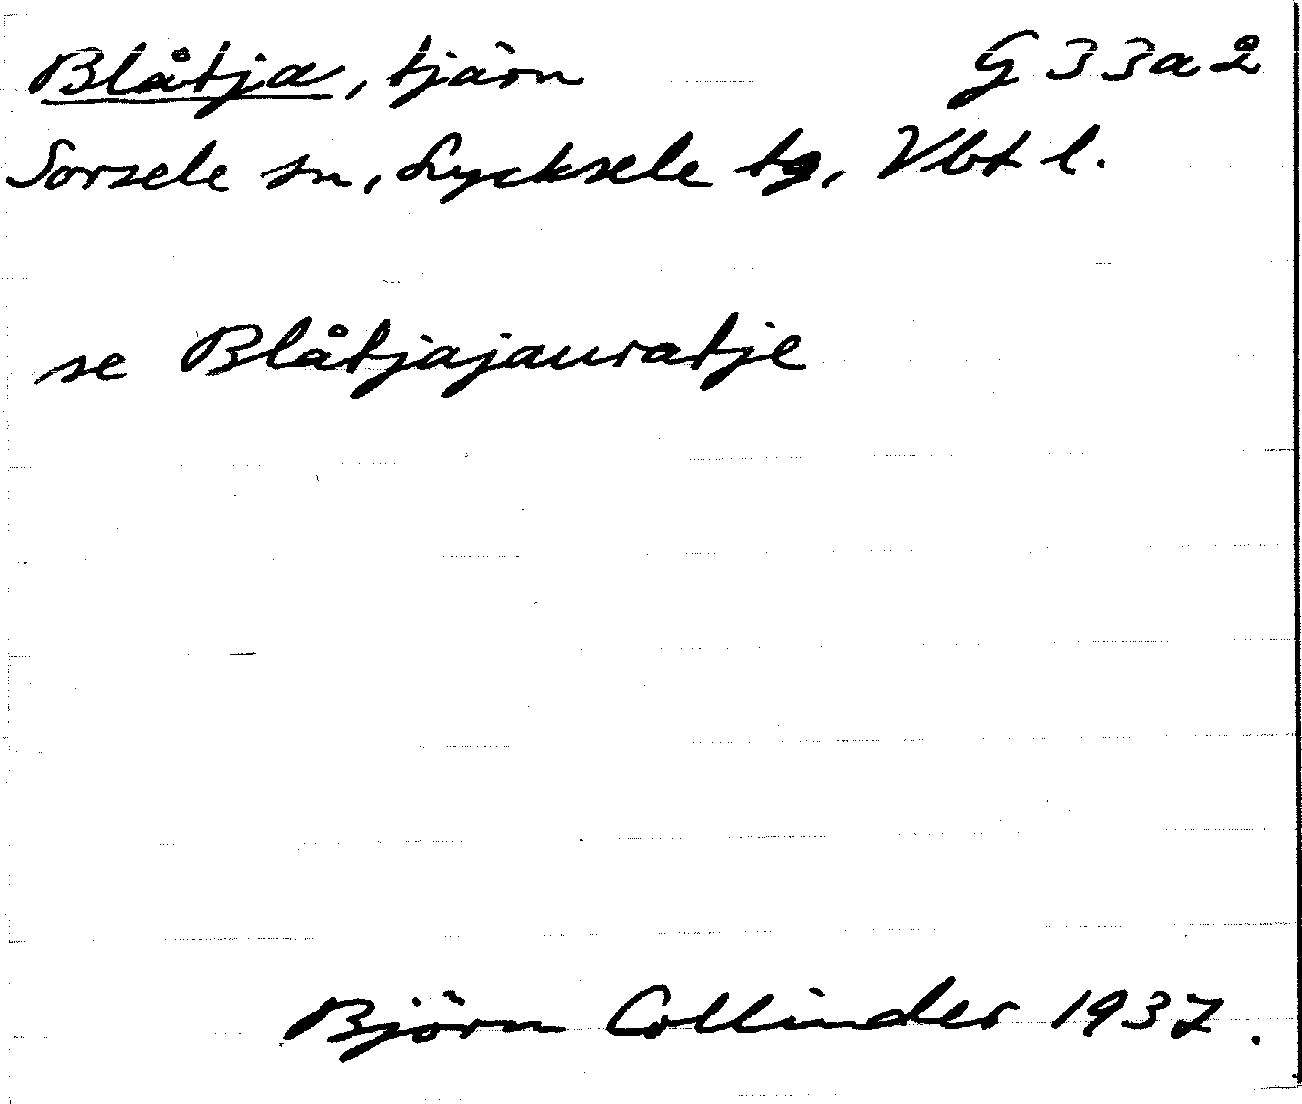 Blåtja, tjärn G33a2
Sorsele sn, Lycksele tg, Vbt l.
se Blåtjajauratje
Björn Collinder 1937.